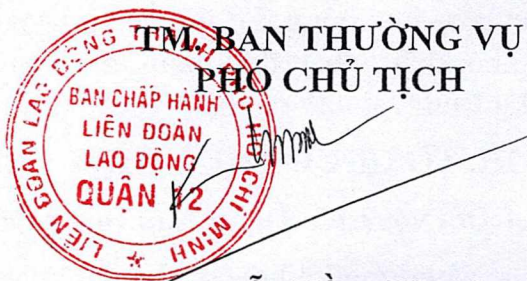 TM. BAN THƯỜNG VỤ
PHÓ CHỦ TỊCH
LIÊN ĐOÀN LAO ĐỘNG THÀNH PHỐ HỒ CHÍ MINH
BAN CHẤP HÀNH
LIÊN ĐOÀN
LAO ĐỘNG
QUẬN 12